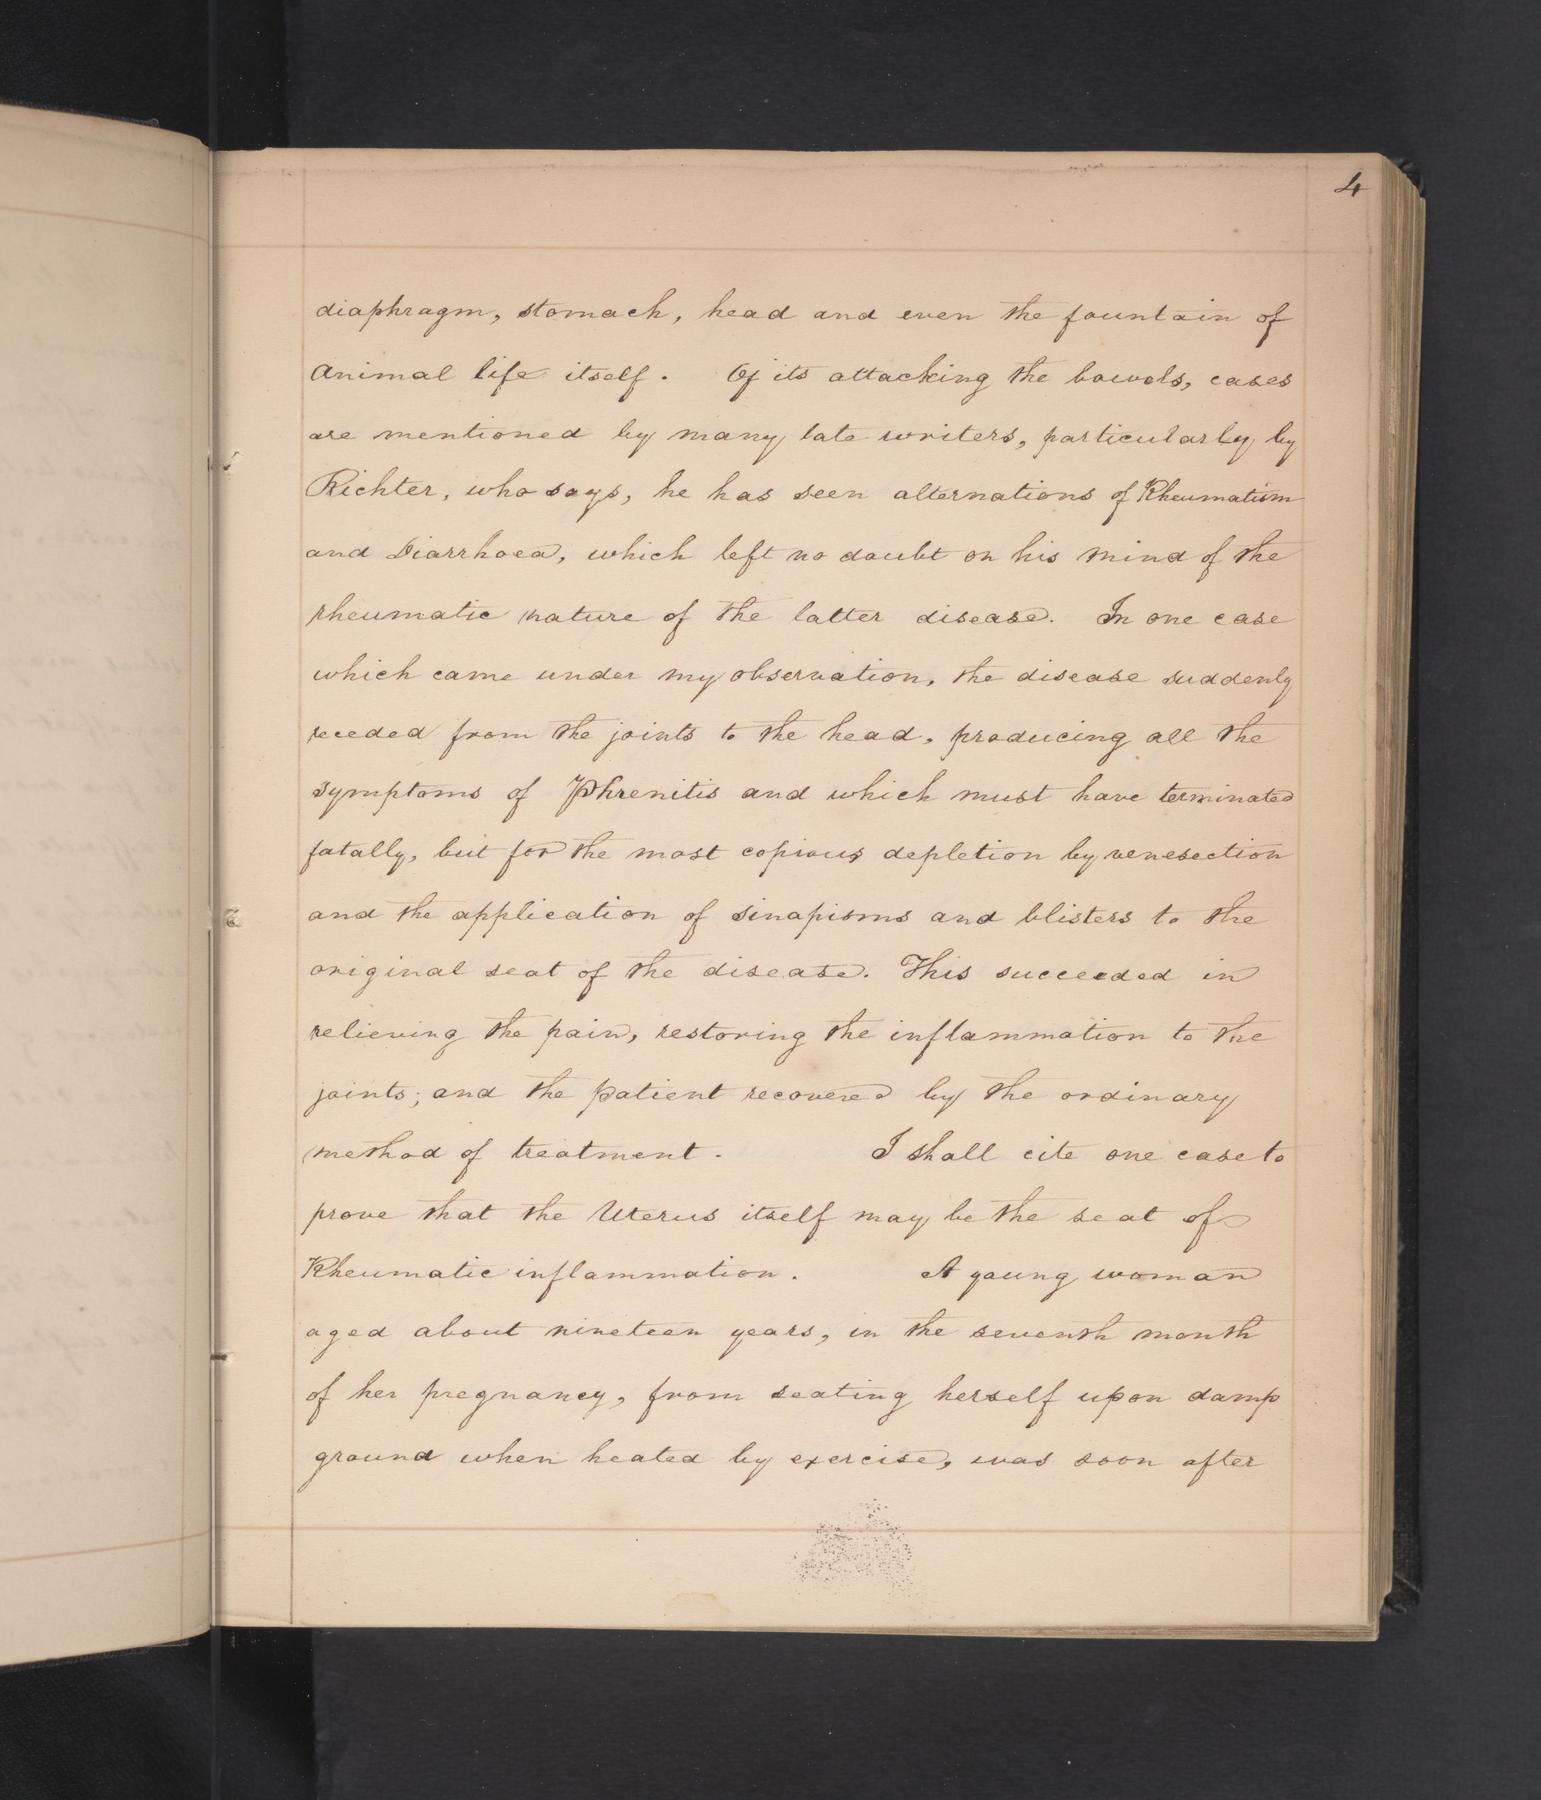 4
diaphragm, stomach, head and even the fountain of
animal life itself. Of its attacking the bowels, cases
are mentioned by many late writers, particularly by
Richter, who says, he has seen alternations of Rheumatism
and Diarrhoea, which left no doubt on his mind of the
rheumatic nature of the latter disease. In one case
which came under my observation, the disease suddenly
receded from the joints to the head, producing all the
symptoms of Phrenitis and which must have terminated
fatally, but for the most copious depletion by venesection
and the application of sinapisms and blisters to the
original seat of the disease. This succeeded in
relieving the pain, restoring the inflammation to the
joints; and the patient recovered by the ordinary
method of treatment. I shall cite one case to
prove that the Uterus itself may be the seat of
Rheumatic inflammation. A young woman
aged about nineteen years, in the seventh month
of her pregnancy, from seating herself upon damp
ground when heated by exercise, was soon after